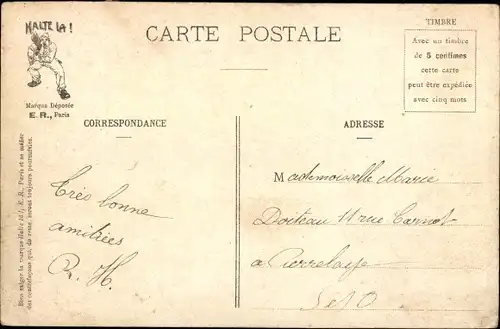 HALTE LA !
Marque Déposée
E. R., Paris
CARTE POSTALE
TIMBRE
Avec un timbre
de 5 centimes
cette carte
peut être expédiée
avec cinq mots
CORRESPONDANCE
ADRESSE
Très bonne
amitiées
R. H.
Mademoiselle Marie
Doiteau 11 rue Carnot
a Pierrelaye
S et O
Bien exiger la marque Halte là !, E. R., Paris et se méfier
des contrefaçons qui, du reste, seront toujours poursuivies.